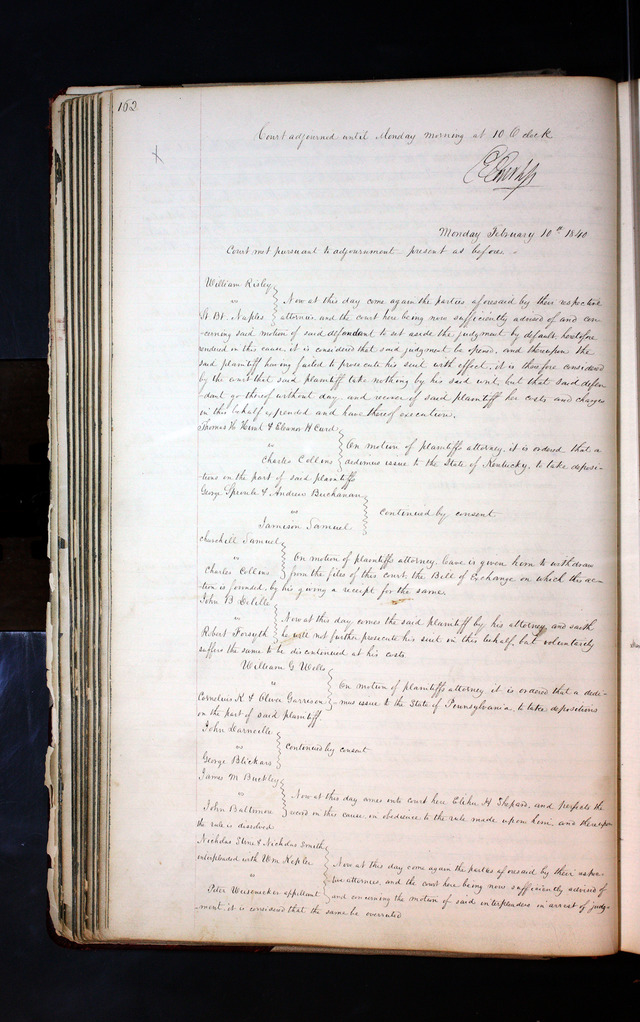 162
Court adjourned until Monday morning at 10 O clock
Monday February 10th 1840
Court met pursuant to adjournment present as before
William Risley
vs
St. Bt. Naples
Now at this day come again the parties aforesaid by their respective
attornies and the court here being now sufficiently advised of and con-
-cerning said motion of said defendant to set aside the judgment by default heretofore
rendered in this cause, it is considered that said judgment be opened, and thereupon the
said plaintiff having failed to prosecute his suit with effect, it is therefore considered
by the court that said plaintiff take nothing by his said writ, but that said defen-
-dant go thereof without day and recover of said plaintiff her costs and charges
in this behalf expended and have thereof execution.
Thomas H. & Eleanor H Curd
vs
Charles Collins
On motion of plaintiffs attorney it is ordered that a
dedimus issue to the State of Kentucky, to take deposi-
-tions on the part of said plaintiffs
George Sproule & Andrew Buchanan
vs
Jameson Samuel
continued by consent
Churchill Samuel
vs
Charles Collins
On motion of plaintiffs attorney, leave is given him to withdraw
from the files of this court, the Bill of Exchange on which this ac-
-tion is founded, by his giving a receipt for the same.
John B Delille
vs
Robert Forsyth
Now at this day comes the said plaintiff by his attorney, and saith
he will not further prosecute his suit in this behalf, but voluntarily
suffers the same to be discontinued at his costs
William G Wells
vs
Cornelius K & Oliver Garrison
On motion of plaintiffs attorney it is ordered that a dedi-
-mus issue to the State of Pennsylvania, to take depositions
on the part of said plaintiff
John Darneille
vs
George Blickars
continued by consent
James M Buckley
vs
John Baltimore
Now at this day comes into court here Elihu H Shepard, and perfects the
record in this cause in obedience to the rule made upon him, and thereupon
the rule is dissolved
Nicholas & Nicholas Smith
interpleaded with Wm Kepler
vs
Peter appellant
Now at this day come again the parties aforesaid by their respec-
-tive attornies, and the court here being now sufficiently advised of
and concerning the motion of said interpleaders in arrest of judg-
-ment, it is considered that the same be overruled